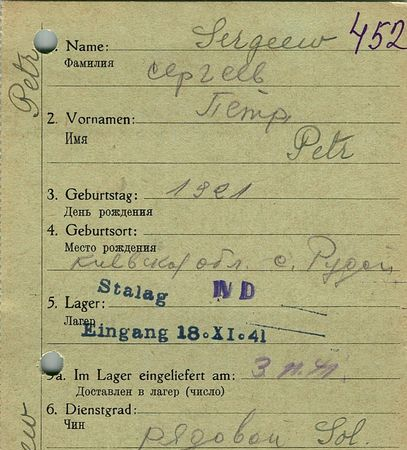 1. Name: Sergeew 452
Фамилия
сергеев
Пётр
2. Vornamen:
Имя
Petr
3. Geburtstag: 1921
День рождения
4. Geburtsort:
Место рождения
киевской обл. с. Рудой
Stalag IV D
5. Lager:
Лагер
Eingang 18.XI.41
5a. Im Lager eingeliefert am: 3.11.41.
Доставлен в лагер (число)
6. Dienstgrad:
Чин
рядовой Sol.
Petr